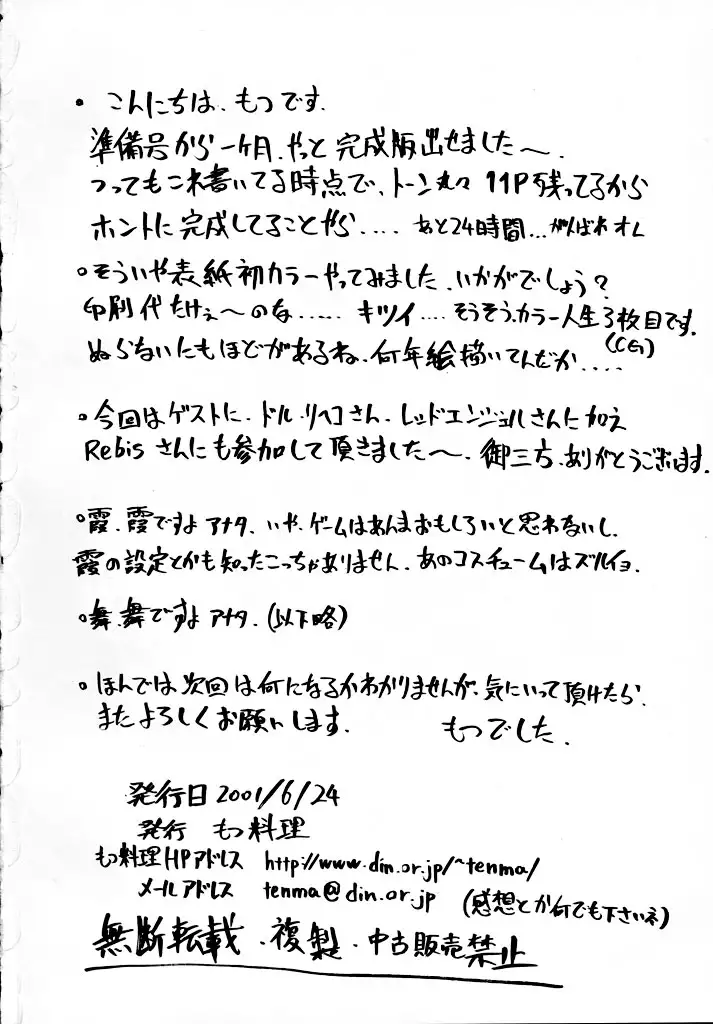 ・こんにちは、もつです。
準備号から一ヶ月、やっと完成版出せました〜。
つってもこれ書いてる時点で、トーン丸々11P残ってるから
ホントに完成してることやら.... あと24時間...がんばれオレ
・そういや表紙初カラーやってみました、いかがでしょう?
印刷代たけぇ〜のな...... キツイ.... そうそう、カラー人生3枚目です。
(CG)
ぬらないにもほどがあるね、何年絵描いてんだか....
・今回はゲストに、ドル・リヘコさん、レッドエンジェルさんに加え
Rebisさんにも参加して頂きました〜、御三方、ありがとうございます。
・霞、霞ですよアナタ、いや、ゲームはあんまおもしろいと思わないし、
霞の設定とかも知ったこっちゃありません、あのコスチュームはズルイョ。
・舞、舞ですよアナタ、(以下略)
・ほんでは次回は何になるかわかりませんが、気にいって頂けたら、
またよろしくお願いします。 もつでした。
発行日 2001/6/24
発行 もつ料理
もつ料理HPアドレス http://www.din.or.jp/~tenma/
メールアドレス tenma@din.or.jp (感想とか何でも下さいネ)
無断転載・複製・中古販売禁止